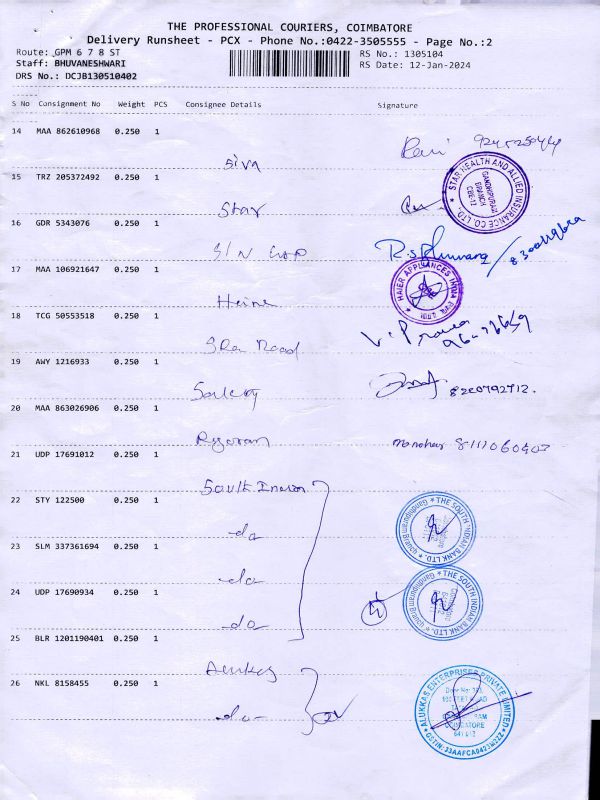 THE PROFESSIONAL COURIERS, COIMBATORE
Delivery Runsheet - PCX - Phone No.:0422-3505555 - Page No.:2
Route: GPM 6 7 8 ST
RS No.: 1305104
Staff: BHUVANESHWARI
RS Date: 12-Jan-2024
DRS No.: DCJB130510402
S No Consignment No Weight PCS Consignee Details Signature
14 MAA 862610968 0.250 1
Siva
15 TRZ 205372492 0.250 1
Star
STAR HEALTH AND ALLIED INSURANCE CO LTD.
16 GDR 5343076 0.250 1
17 MAA 106921647 0.250 1
HAIER APPLIANCES INDIA
18 TCG 50553518 0.250 1
19 AWY 1216933 0.250 1
8220792712.
20 MAA 863026906 0.250 1
manohar
21 UDP 17691012 0.250 1
South Indian
22 STY 122500 0.250 1
THE SOUTH INDIAN BANK LTD.
do
23 SLM 337361694 0.250 1
do
24 UDP 17690934 0.250 1
THE SOUTH INDIAN BANK LTD.
4
do
25 BLR 1201190401 0.250 1
Alukkas
26 NKL 8158455 0.250 1
ALUKKAS ENTERPRISES PRIVATE LIMITED
do